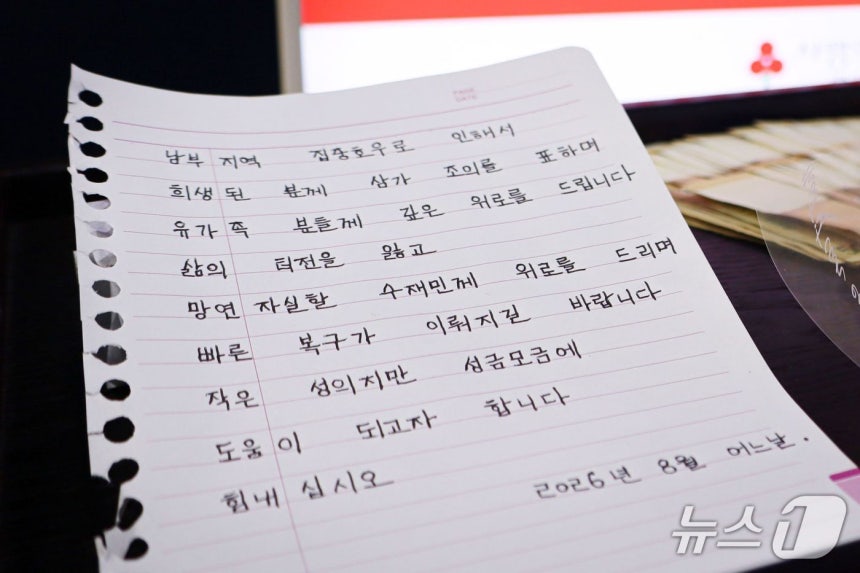 PAGE
DATE
남부 지역 집중호우로 인해서
희생된 분께 삼가 조의를 표하며
유가족 분들께 깊은 위로를 드립니다
삶의 터전을 잃고
망연자실할 수재민께 위로를 드리며
빠른 복구가 이뤄지길 바랍니다
작은 성의지만 성금모금에
도움이 되고자 합니다
힘내십시오 2026년 8월 어느날.
뉴스1